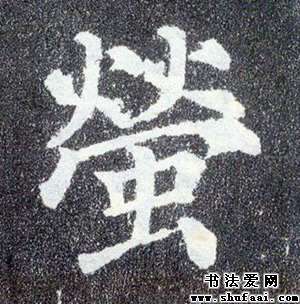 螢
书法爱网
www.shufaai.com